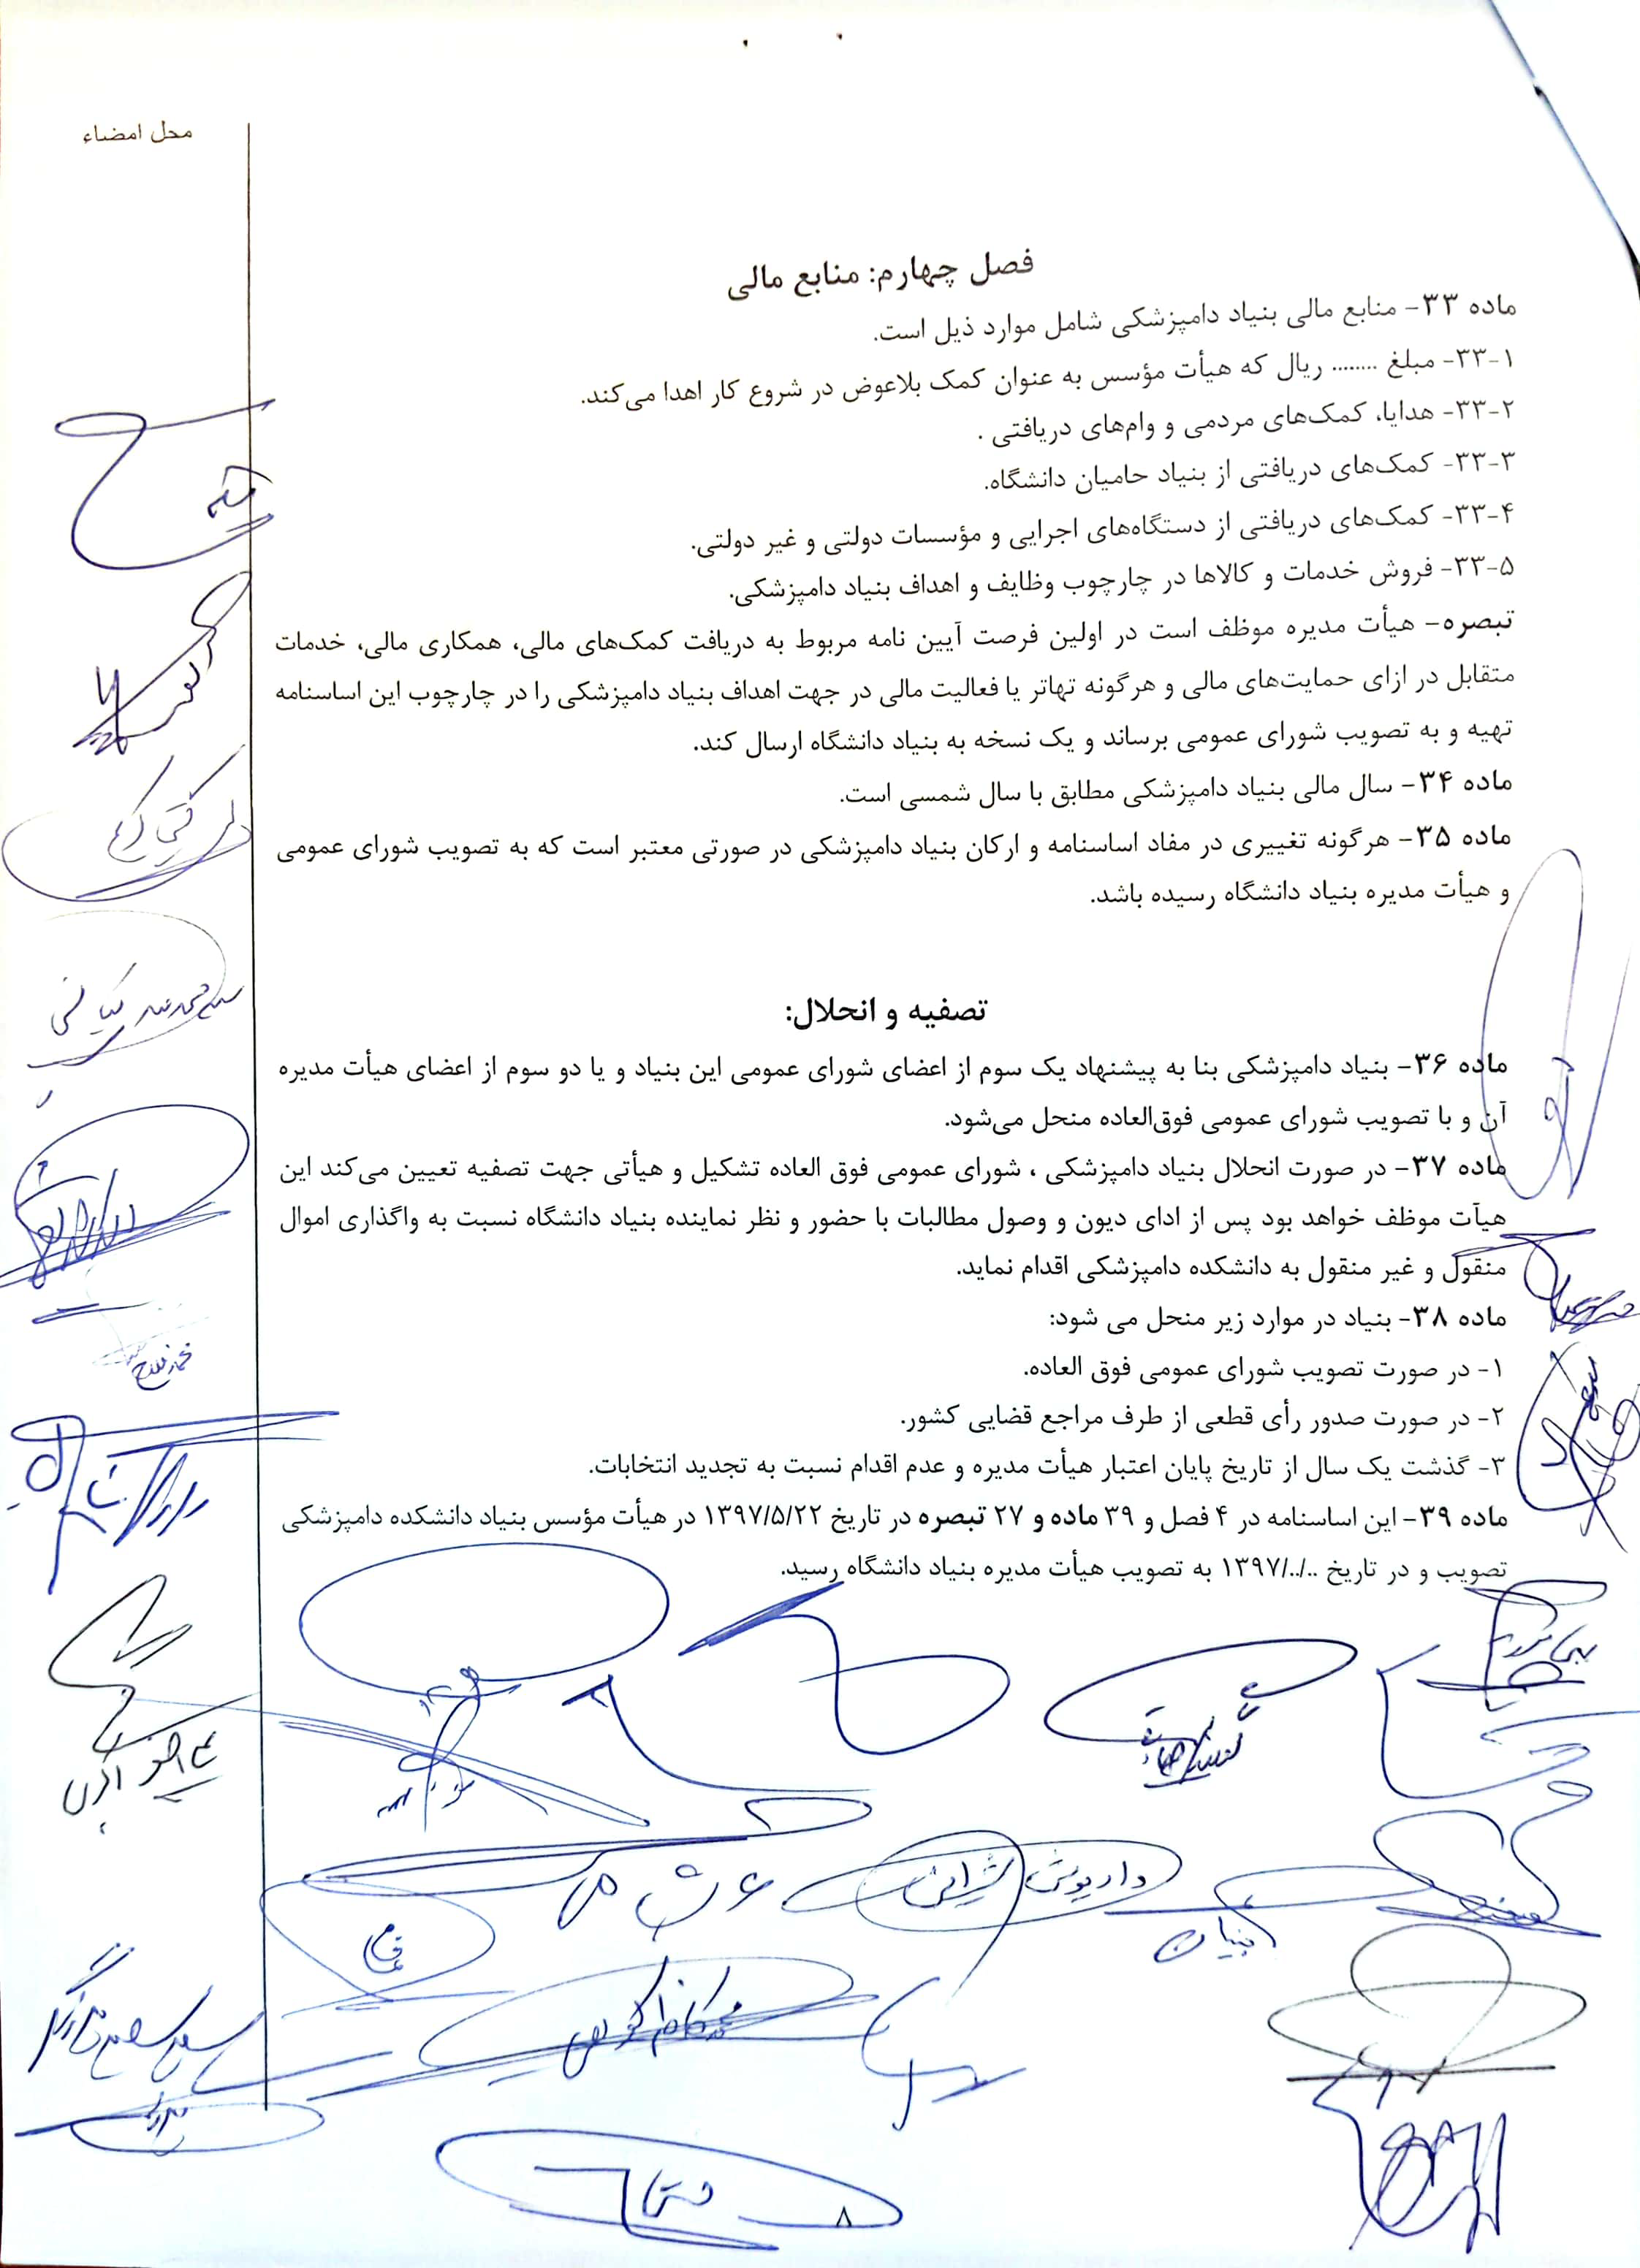 محل امضاء
فصل چهارم: منابع مالی
ماده ۳۳- منابع مالی بنیاد دامپزشکی شامل موارد ذیل است.
۳۳-۱- مبلغ ........ ریال که هیأت مؤسس به عنوان کمک بلاعوض در شروع کار اهدا می‌کند.
۳۳-۲- هدایا، کمک‌های مردمی و وام‌های دریافتی .
۳۳-۳- کمک‌های دریافتی از بنیاد حامیان دانشگاه.
۳۳-۴- کمک‌های دریافتی از دستگاه‌های اجرایی و مؤسسات دولتی و غیر دولتی.
۳۳-۵- فروش خدمات و کالاها در چارچوب وظایف و اهداف بنیاد دامپزشکی.
تبصره- هیأت مدیره موظف است در اولین فرصت آیین نامه مربوط به دریافت کمک‌های مالی، همکاری مالی، خدمات
متقابل در ازای حمایت‌های مالی و هرگونه تهاتر یا فعالیت مالی در جهت اهداف بنیاد دامپزشکی را در چارچوب این اساسنامه
تهیه و به تصویب شورای عمومی برساند و یک نسخه به بنیاد دانشگاه ارسال کند.
ماده ۳۴- سال مالی بنیاد دامپزشکی مطابق با سال شمسی است.
ماده ۳۵- هرگونه تغییری در مفاد اساسنامه و ارکان بنیاد دامپزشکی در صورتی معتبر است که به تصویب شورای عمومی
و هیأت مدیره بنیاد دانشگاه رسیده باشد.
تصفیه و انحلال:
ماده ۳۶- بنیاد دامپزشکی بنا به پیشنهاد یک سوم از اعضای شورای عمومی این بنیاد و یا دو سوم از اعضای هیأت مدیره
آن و با تصویب شورای عمومی فوق‌العاده منحل می‌شود.
ماده ۳۷- در صورت انحلال بنیاد دامپزشکی ، شورای عمومی فوق العاده تشکیل و هیأتی جهت تصفیه تعیین می‌کند این
هیأت موظف خواهد بود پس از ادای دیون و وصول مطالبات با حضور و نظر نماینده بنیاد دانشگاه نسبت به واگذاری اموال
منقول و غیر منقول به دانشکده دامپزشکی اقدام نماید.
ماده ۳۸- بنیاد در موارد زیر منحل می شود:
۱- در صورت تصویب شورای عمومی فوق العاده.
۲- در صورت صدور رأی قطعی از طرف مراجع قضایی کشور.
۳- گذشت یک سال از تاریخ پایان اعتبار هیأت مدیره و عدم اقدام نسبت به تجدید انتخابات.
ماده ۳۹- این اساسنامه در ۴ فصل و ۳۹ ماده و ۲۷ تبصره در تاریخ ۱۳۹۷/۵/۲۲ در هیأت مؤسس بنیاد دانشکده دامپزشکی
تصویب و در تاریخ ۱۳۹۷/../.. به تصویب هیأت مدیره بنیاد دانشگاه رسید.
داریوش شیرانی
۸